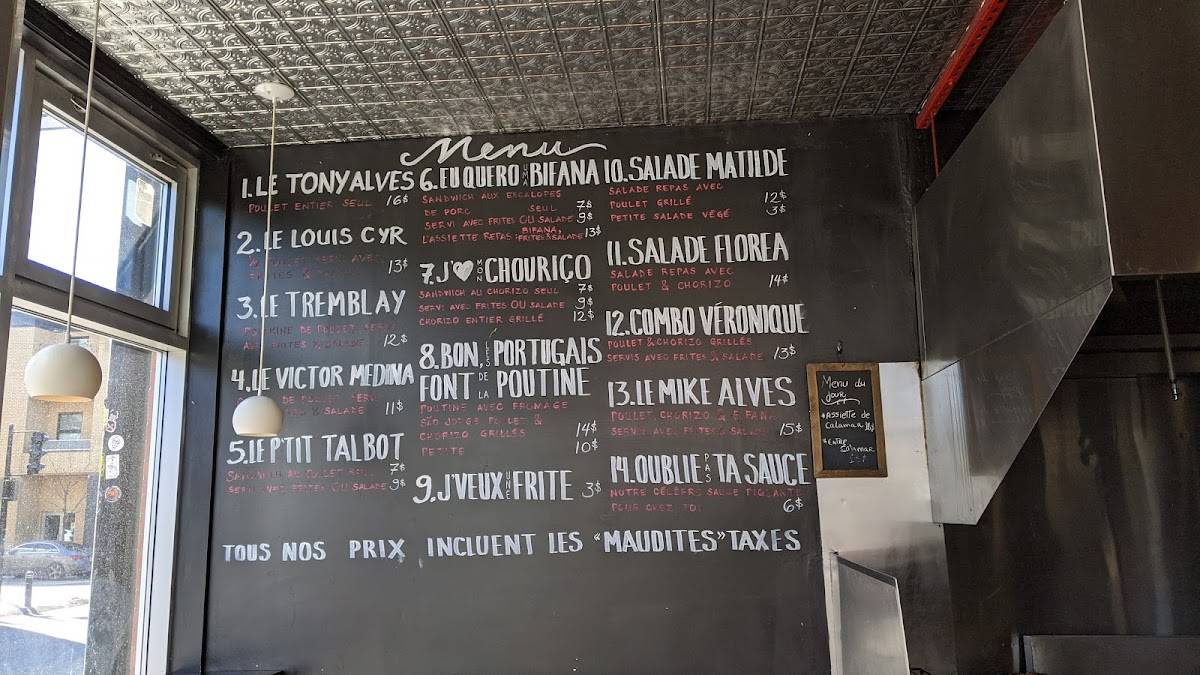 Menu
1. LE TONY ALVES
POULET ENTIER SEUL 16$
2. LE LOUIS CYR
13$
3. LE TREMBLAY
DE POULET SERVI
AVEC FRITES & SALADE 12$
4. LE VICTOR MEDINA
DE POULET SERVI
& SALADE 11$
5. LE P'TIT TALBOT
SANDWICH AU POULET SEUL 7$
SERVI AVEC FRITES OU SALADE 9$
6. EU QUERO BIFANA
SANDWICH AUX ESCALOPES
DE PORC SEUL 7$
SERVI AVEC FRITES OU SALADE 9$
L'ASSIETTE REPAS: BIFANA, FRITES & SALADE 13$
7. J'♥ MON CHOURIÇO
SANDWICH AU CHORIZO SEUL 7$
SERVI AVEC FRITES OU SALADE 9$
CHORIZO ENTIER GRILLÉ 12$
8. BON, LES PORTUGAIS
FONT DE LA POUTINE
POUTINE AVEC FROMAGE
SÃO JORGE, POULET &
CHORIZO GRILLÉS 14$
PETITE 10$
9. J'VEUX UNE FRITE 3$
10. SALADE MATILDE
SALADE REPAS AVEC
POULET GRILLÉ 12$
PETITE SALADE VÉGÉ 3$
11. SALADE FLOREA
SALADE REPAS AVEC
POULET & CHORIZO 14$
12. COMBO VÉRONIQUE
POULET & CHORIZO GRILLÉS
SERVIS AVEC FRITES & SALADE 13$
13. LE MIKE ALVES
POULET, CHORIZO & BIFANA
SERVIS AVEC FRITES & SALADE 15$
14. OUBLIE PAS TA SAUCE
NOTRE CÉLÈBRE SAUCE PIQUANTE
POUR CHEZ TOI 6$
TOUS NOS PRIX INCLUENT LES "MAUDITES" TAXES
Menu du
jour
*ASSIETTE DE
CALAMAR
CALAMAR